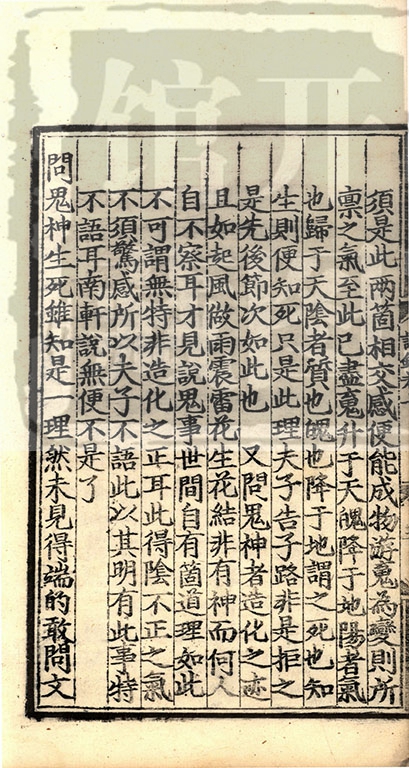 須是此兩箇相交感便能成物游䰟為變則所
禀之氣至此已盡䰟升于天魄降于地陽者氣
也歸于天陰者質也魄也降于地謂之死也知
生則便知死只是此理夫子告子路非是拒之
是先後節次如此也　又問鬼神者造化之迹
且如起風做雨震雷花生花結非有神而何人
自不察耳才見說鬼事世間自有箇道理如此
不可謂無特非造化之正耳此得陰不正之氣
不須驚惑所以夫子不語此以其明有此事特
不語耳南軒說無便不是了
問鬼神生死雖知是一理然未見得端的敢問文